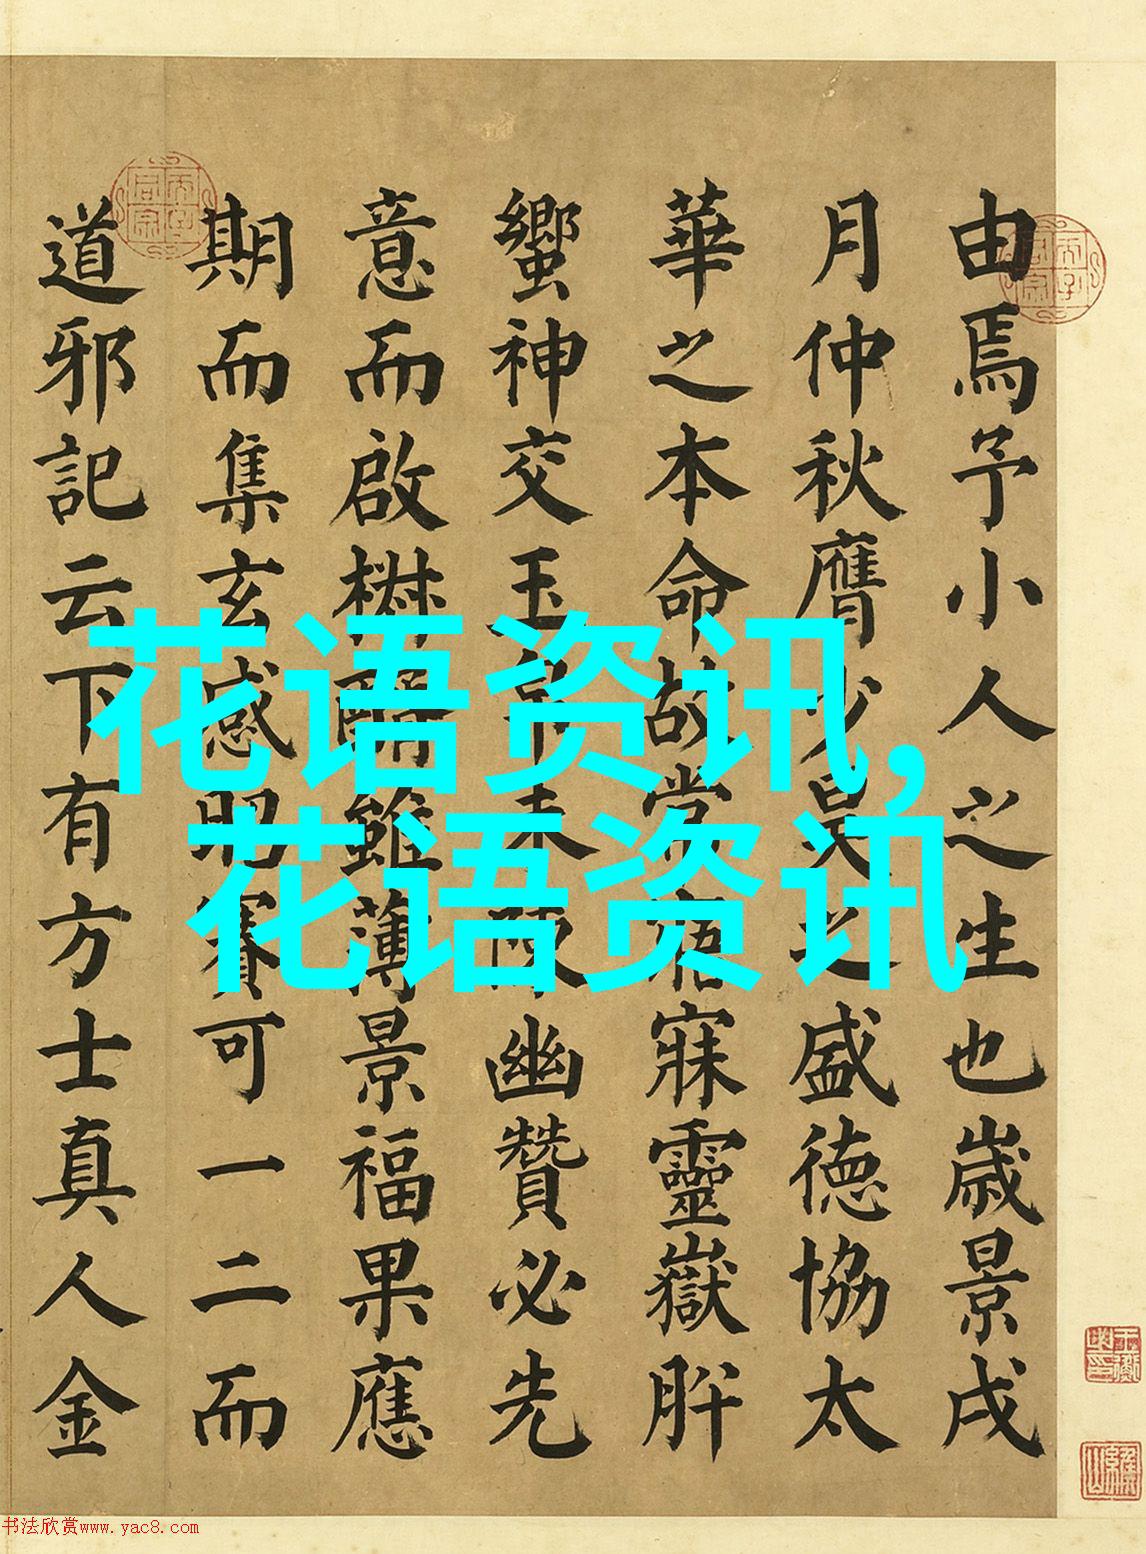 由焉予小人之生也歲景戌
月仲秋膺少昊之盛德協太
華之本命故常寤寐靈嶽肸
蠁神交玉帛未陳幽贊必先
意而啟樹酧雖薄景福果應
期而集玄感昭賽可一二而
道邪記云下有方士真人金
花语资讯,
花语资讯
书法欣赏www.yac8.com